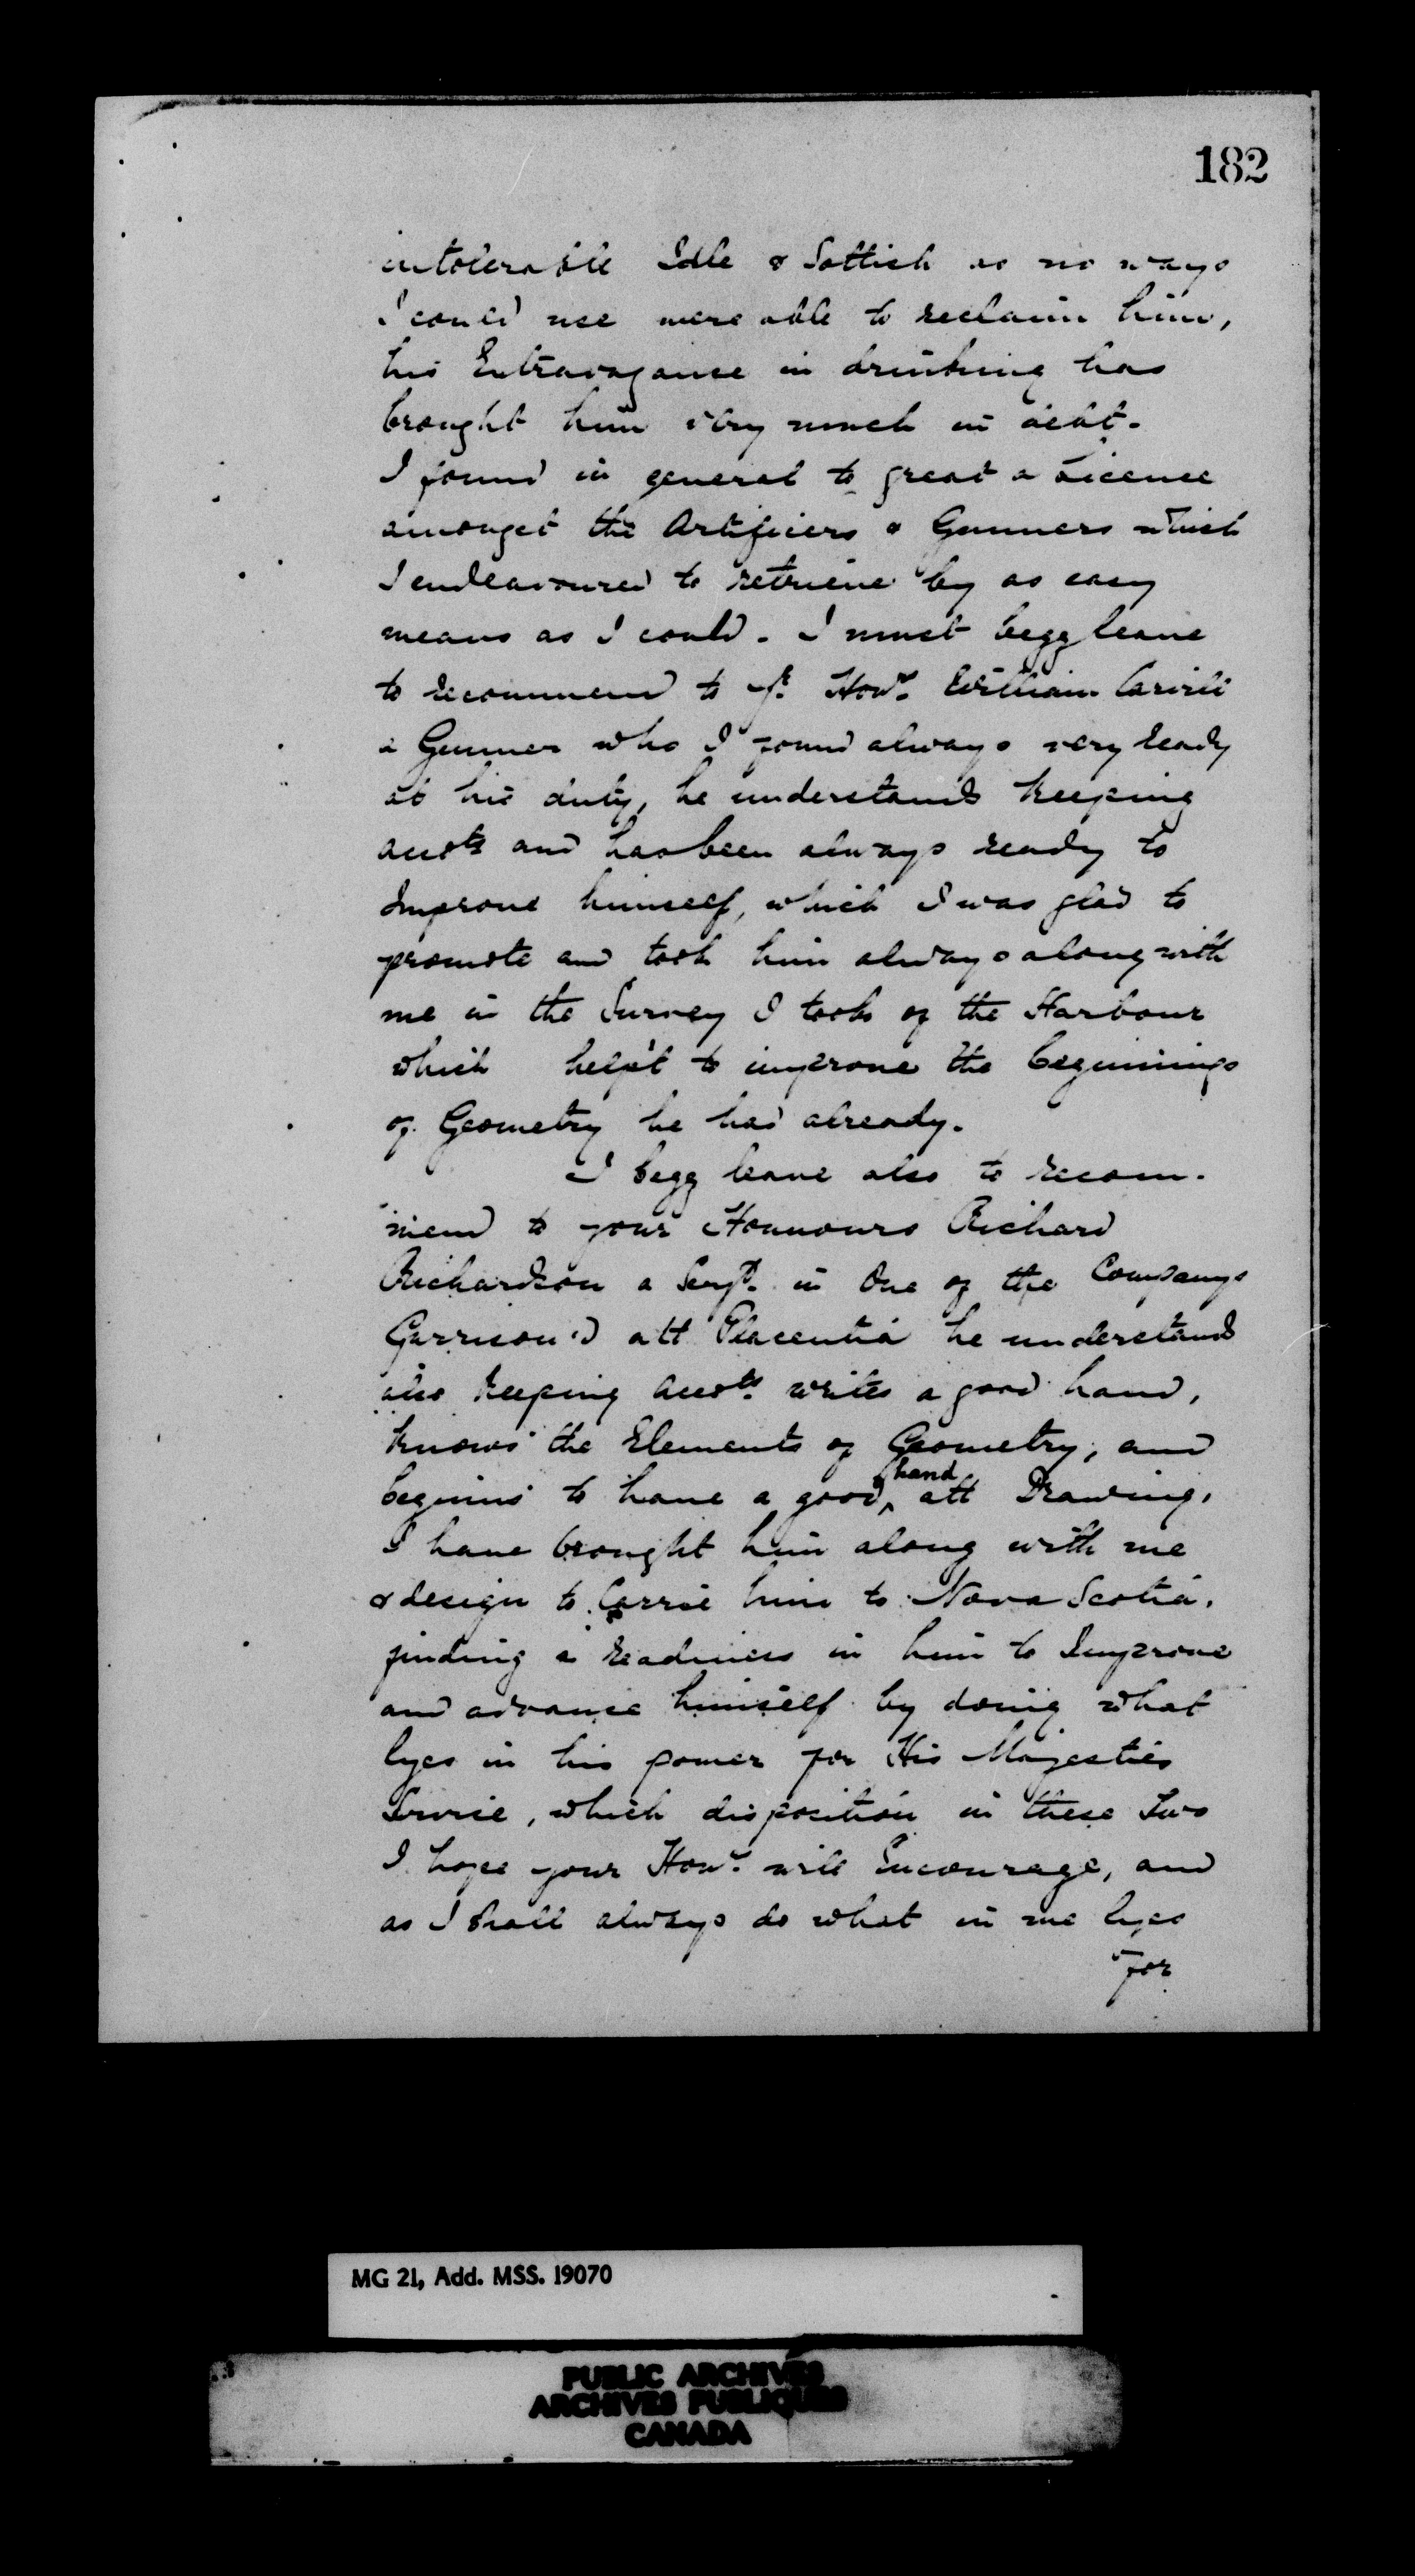 182
intolerable Idle & Sottish as no ways
I could use were able to reclaim him,
his Extravagance in drinking has
brought him very much in debt.
I found in general to great a Licence
amongst the Artificers & Gunners which
I endeavoured to retrieve by as easy
means as I could. I must begg leave
to recommend to yr. Honrs. William
a Gunner who I found always very ready
at his duty, he understands keeping
accots and has been always ready to
Improve himself, which I was glad to
promote and took him always along with
me in the Survey I took of the Harbour
which help't to improve the beginnings
of Geometry he had already.
I begg leave also to recom-
mend to your Honnours Richard
Richardson a Serjt. in One of the Companys
Garrison'd att Placentia he understands
also keeping accots. writes a good hand,
knows the Elements of Geometry, and
beginns to have a good hand att Drawing,
I have brought him along with me
& design to Carrie him to Nova Scotia,
finding a readiness in him to Improve
and advance himself by doing what
lyes in his power for His Majesties
Servie, which disposition in these Two
I hope your Honrs. will Encourage, and
as I shall always do what in me lyes
for
MG 21, Add. MSS. 19070
PUBLIC ARCHIVES
ARCHIVES PUBLIQUES
CANADA